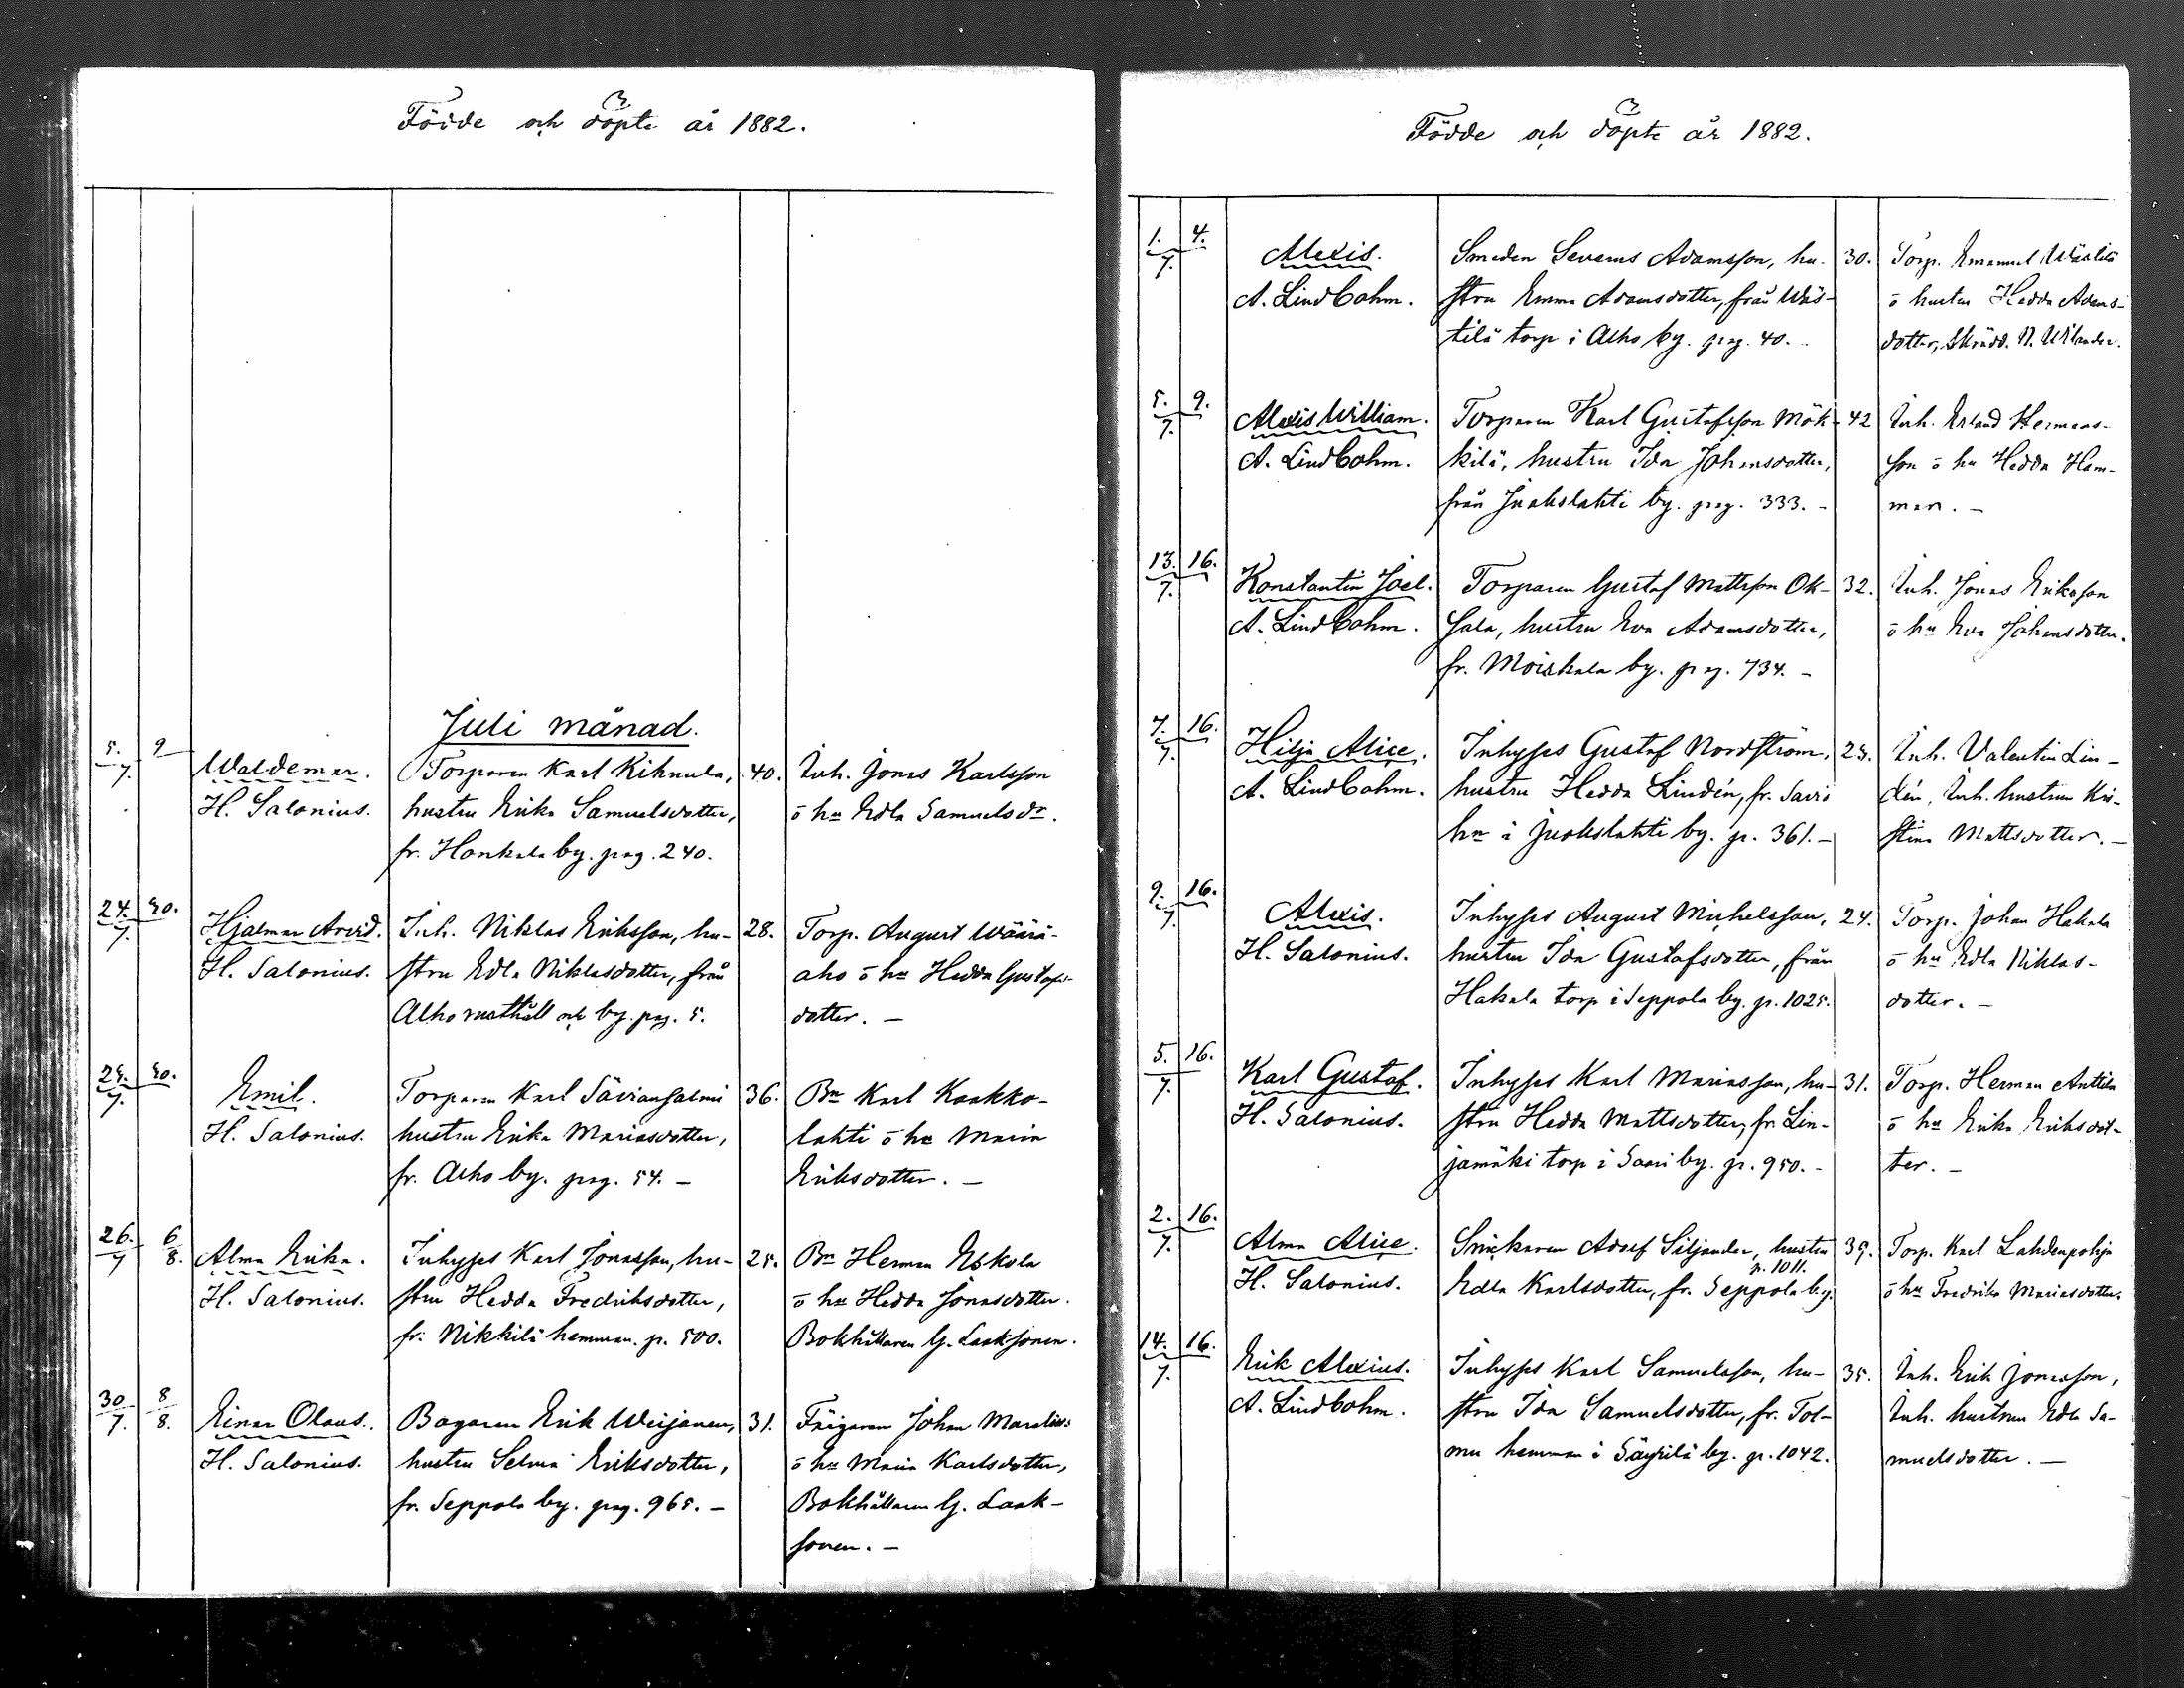 Födde och döpte år 1882.
Juli månad.
5. 9
7.
Waldemar. Torparen Karl Kihnula, 40. Inh. Jonas Karlsson
H. Salonius. hustru Erika Samuelsdotter, o hu Edla Samuelsdr.
fr. Honkala by. pag. 240.
24. 30.
7.
Hjalmar Arvid. Inh. Niklas Eriksson, hu- 28. Torp. August Wäärä-
H. Salonius. stru Edla Niklasdotter, från aho o hu Hedda Gustafs-
Alho rusthåll och by. pag. 5. dotter. –
25. 30.
7.
Emil. Torparen Karl Säviansalmi 36. Bn Karl Kaukko-
H. Salonius. hustru Erika Mariasdotter, lahti o hu Maria
fr. Alho by. pag. 54. – Eriksdotter. –
26. 6
7 8.
Alma Erika. Inhyses Karl Jonasson, hu- 25. Bn Herman Eskola
H. Salonius. stru Hedda Fredriksdotter, o hu Hedda Jonasdotter.
fr. Nikkilä hemman. p. 500. Bokhållaren G. Laaksonen.
30 8
7. 8.
Einar Olaus. Bagaren Erik Weijanen, 31. Färgaren Johan
H. Salonius. hustru Selma Eriksdotter, o hu Maria Karlsdotter,
fr. Seppola by. pag. 965. – Bokhållaren G. Laak-
sonen. –
Födde och döpte år 1882.
1. 4.
7.
Alexis. Smeden Severus Adamsson, hu- 30. Torp. Emanuel
A. Lindbohm. stru Emma Adamsdotter, från Wäs- o hustru Hedda Adams-
tilä torp i Alho by. pag. 40. dotter, Skrädd. N. Wilander.
5. 9.
7.
Alexis William. Torparen Karl Gustafsson Mök- 42 Inh. Erland Hermans-
A. Lindbohm. kilä, hustru Ida Johansdotter, son o hu Hedda Ham-
från Juokslahti by. pag. 333. – man. –
13. 16.
7.
Konstantin Joel. Torparen Gustaf Mattsson Ok- 32. Inh. Jonas Eriksson
A. Lindbohm. sala, hustru Eva Adamsdotter, o hu Eva Johansdotter.
fr. Moiskala by. pag. 734. –
7. 16.
7.
Hilja Alice. Inhyses Gustaf Nordström, 25. Inh. Valentin Lin-
A. Lindbohm. hustru Hedda Lindén, fr. Savio dén, Inh. hustrun Kri-
hn i Juokslahti by. p. 361. – stina Mattsdotter. –
9. 16.
7.
Alexis. Inhyses August Michelsson, 24. Torp. Johan Hakala
H. Salonius. hustru Ida Gustafsdotter, från o hu Edla Niklas-
Hakala torp i Seppola by. p. 1025. dotter. –
5. 16.
7.
Karl Gustaf. Inhyses Karl Mariasson, hu- 31. Torp. Herman Anttila
H. Salonius. stru Hedda Mattsdotter, fr. Lin- o hu Erika Eriksdot-
jamäki torp i Saari by. p. 950. – ter. –
2. 16.
7.
Alma Alice. Snickaren Adolf Siljander, hustru 39. Torp. Karl Lahdenpohja
p. 1011.
H. Salonius. Edla Karlsdotter, fr. Seppola by. o hu Fredrika Mariasdotter.
14. 16.
7.
Erik Alexius. Inhyses Karl Samuelsson, hu- 35. Inh. Erik Jonasson,
A. Lindbohm. stru Ida Samuelsdotter, fr. Tol- Inh. hustrun Edla Sa-
mu hemman i Säyrilä by. p. 1042. muelsdotter. –